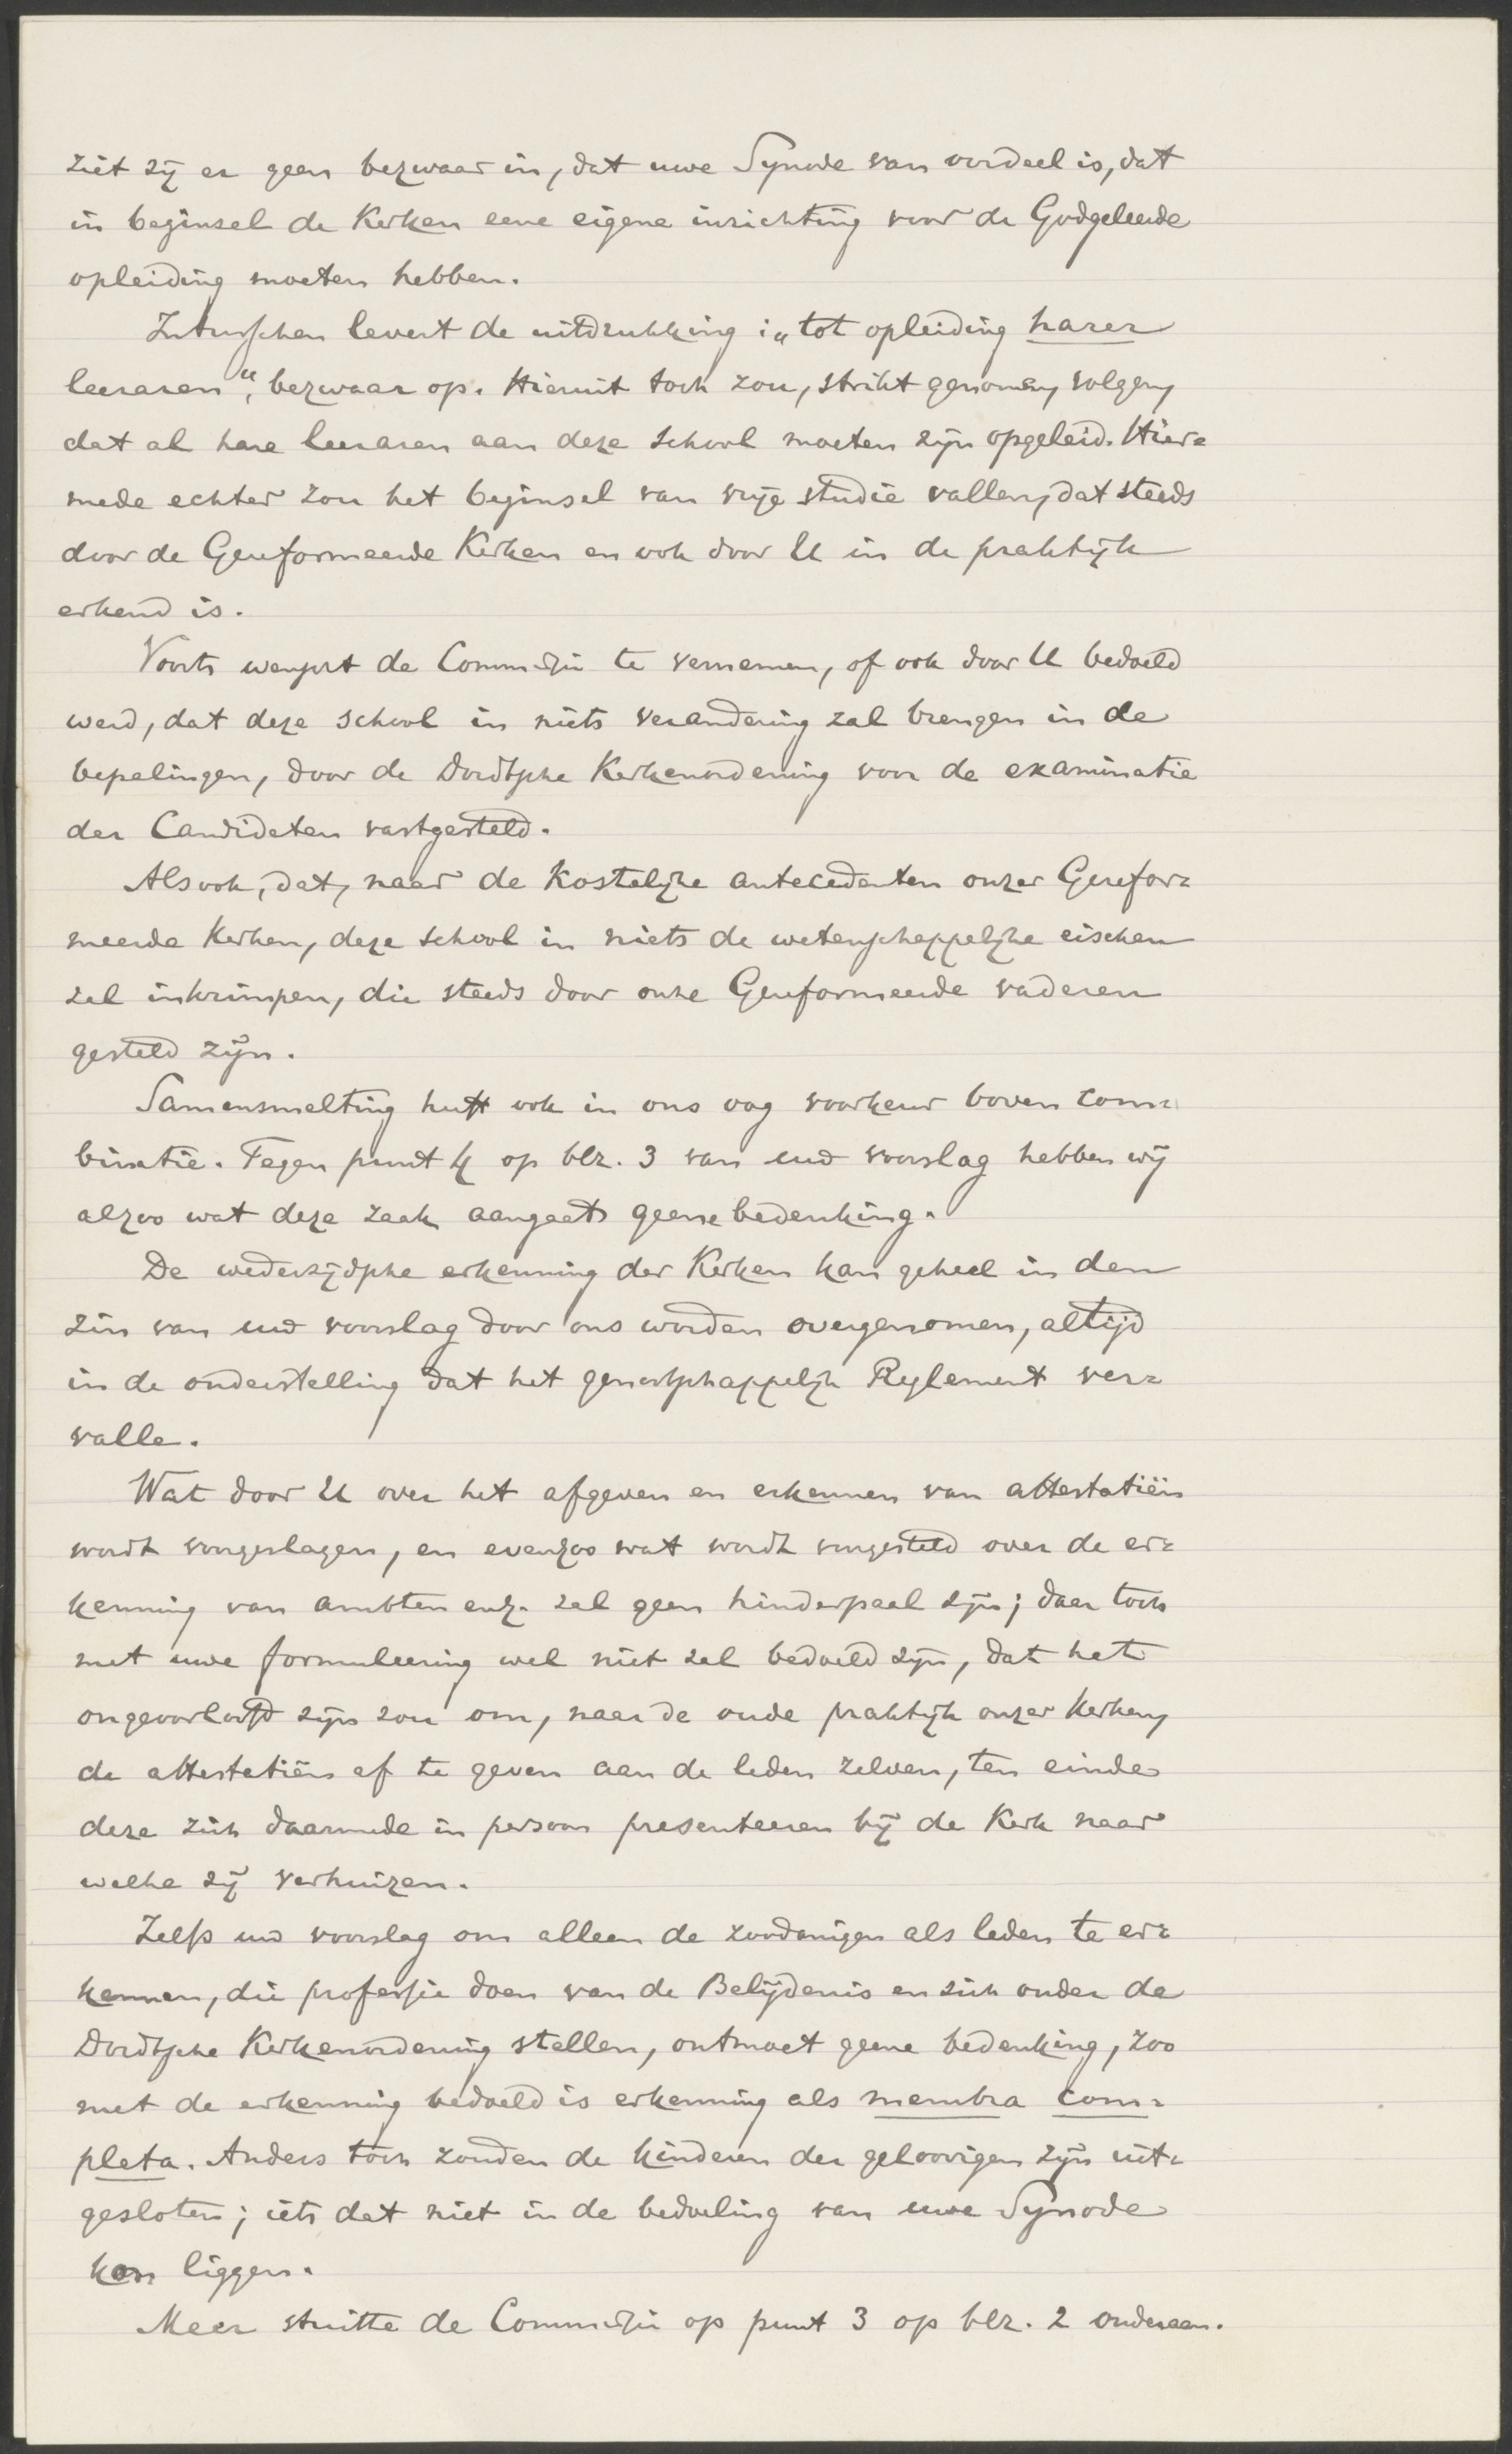 ziet zij er geen bezwaar in, dat uwe Synode van oordeel is, dat
in beginsel de Kerken eene eigene inrichting voor de Godgeleerde
opleiding moeten hebben.
Intusschen levert de uitdrukking: „tot opleiding harer
leeraren", bezwaar op. Hieruit toch zou, strikt genomen, volgen,
dat al hare leeraren aan deze School moeten zijn opgeleid. Hier-
mede echter zou het beginsel van vrije studie vallen, dat steeds
door de Gereformeerde Kerken en ook door U in de praktijk
erkend is.
Voorts wenscht de Commissie te vernemen, of ook door U bedoeld
werd, dat deze school in niets verandering zal brengen in de
bepalingen, door de Dordtsche Kerkenordening voor de examinatie
der Candidaten vastgesteld.
Alsook, dat, naar de kostelijke antecedenten onzer Gerefor-
meerde Kerken, deze School in niets de wetenschappelijke eischen
zal inkrimpen, die steeds door onze Gereformeerde vaderen
gesteld zijn.
Samensmelting heeft ook in ons oog voorkeur boven com-
binatie. Tegen punt 4 op blz. 3 van uw voorslag hebben wij
alzoo wat deze zaak aangaat geene bedenking.
De wederzijdsche erkenning der Kerken kan geheel in den
zin van uw voorslag door ons worden overgenomen, altijd
in de onderstelling dat het genootschappelijk Reglement ver-
valle.
Wat door U over het afgeven en erkennen van attestatiën
wordt voorgeslagen, en evenzoo wat wordt voorgesteld over de er-
kenning van ambten enz. zal geen hinderpaal zijn; daar toch
met uwe formuleering wel niet zal bedoeld zijn, dat het
ongeoorloofd zijn zou om, naar de oude praktijk onzer Kerken,
de attestatiën af te geven aan de leden zelven, ten einde
deze zich daarmede in persoon presenteeren bij de Kerk naar
welke zij verhuizen.
Zelfs uw voorslag om alleen de zoodanigen als leden te er-
kennen, die professie doen van de Belijdenis en zich onder de
Dordtsche Kerkenordening stellen, ontmoet geene bedenking, zoo
met de erkenning bedoeld is erkenning als membra com-
pleta. Anders toch zouden de kinderen der geloovigen zijn uit-
gesloten; iets dat niet in de bedoeling van uwe Synode
kon liggen.
Meer stuitte de Commissie op punt 3 op blz. 2 onderaan.